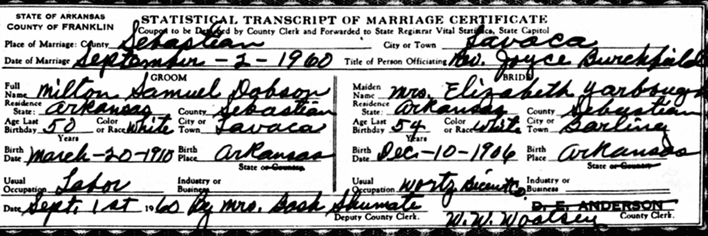 STATE OF ARKANSAS
COUNTY OF FRANKLIN
STATISTICAL TRANSCRIPT OF MARRIAGE CERTIFICATE
Coupon to be Detached by County Clerk and Forwarded to State Registrar Vital Statistics, State Capitol
Place of Marriage: County Sebastian City or Town Lavaca
Date of Marriage September-2-1960 Title of Person Officiating Rev. Joyce Burchfield
GROOM BRIDE
Full Name Milton Samuel Dobson Maiden Name Mrs. Elizabeth Yarbough
Residence State: Arkansas County Sebastian Residence State: Arkansas County Sebastian
Age Last Birthday 50 Years Color or Race White City or Town Lavaca Age Last Birthday 54 Years Color or Race White City or Town Barling
Birth Date March-20-1910 Birth Place Arkansas Birth Date Dec-10-1906 Birth Place Arkansas
State or Country State or Country
Usual Occupation Labor Industry or Business Usual Occupation Wortz Biscuit Co. Industry or Business
Date Sept. 1st 1960 By Mrs. Bosh Shumate Deputy County Clerk. D. E. ANDERSON County Clerk.
W. W. Woolsey